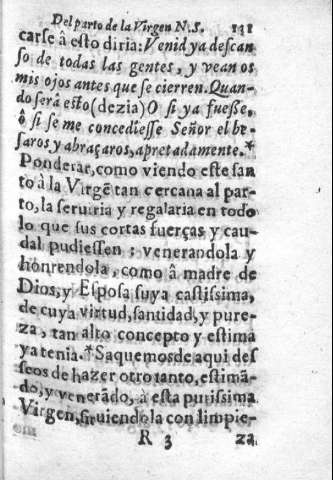 Del parto de la Virgen N.S. 131
carse â esto diria: Venid ya descan-
so de todas las gentes, y vean os
mis ojos antes que se cierren. Quan-
do serà esto (dezia) O si ya fuesse,
ô si se me concediesse Señor el be-
saros y abraçaros, apretadamente.*
Ponderar, como viendo este san
to à la Virgẽ tan cercana al par-
to, la seruiria y regalaria en todo
lo que sus cortas fuerças y cau-
dal pudiessen; venerandola y
honrendola, como â madre de
Dios, y Esposa suya castissima,
de cuya virtud, santidad, y pure-
za, tan alto concepto y estima
ya tenia. *Saquemos de aqui des
seos de hazer otro tanto, estimã-
do, y venerãdo, à esta purissima
Virgen, siruiendola con limpie-
R 3 za